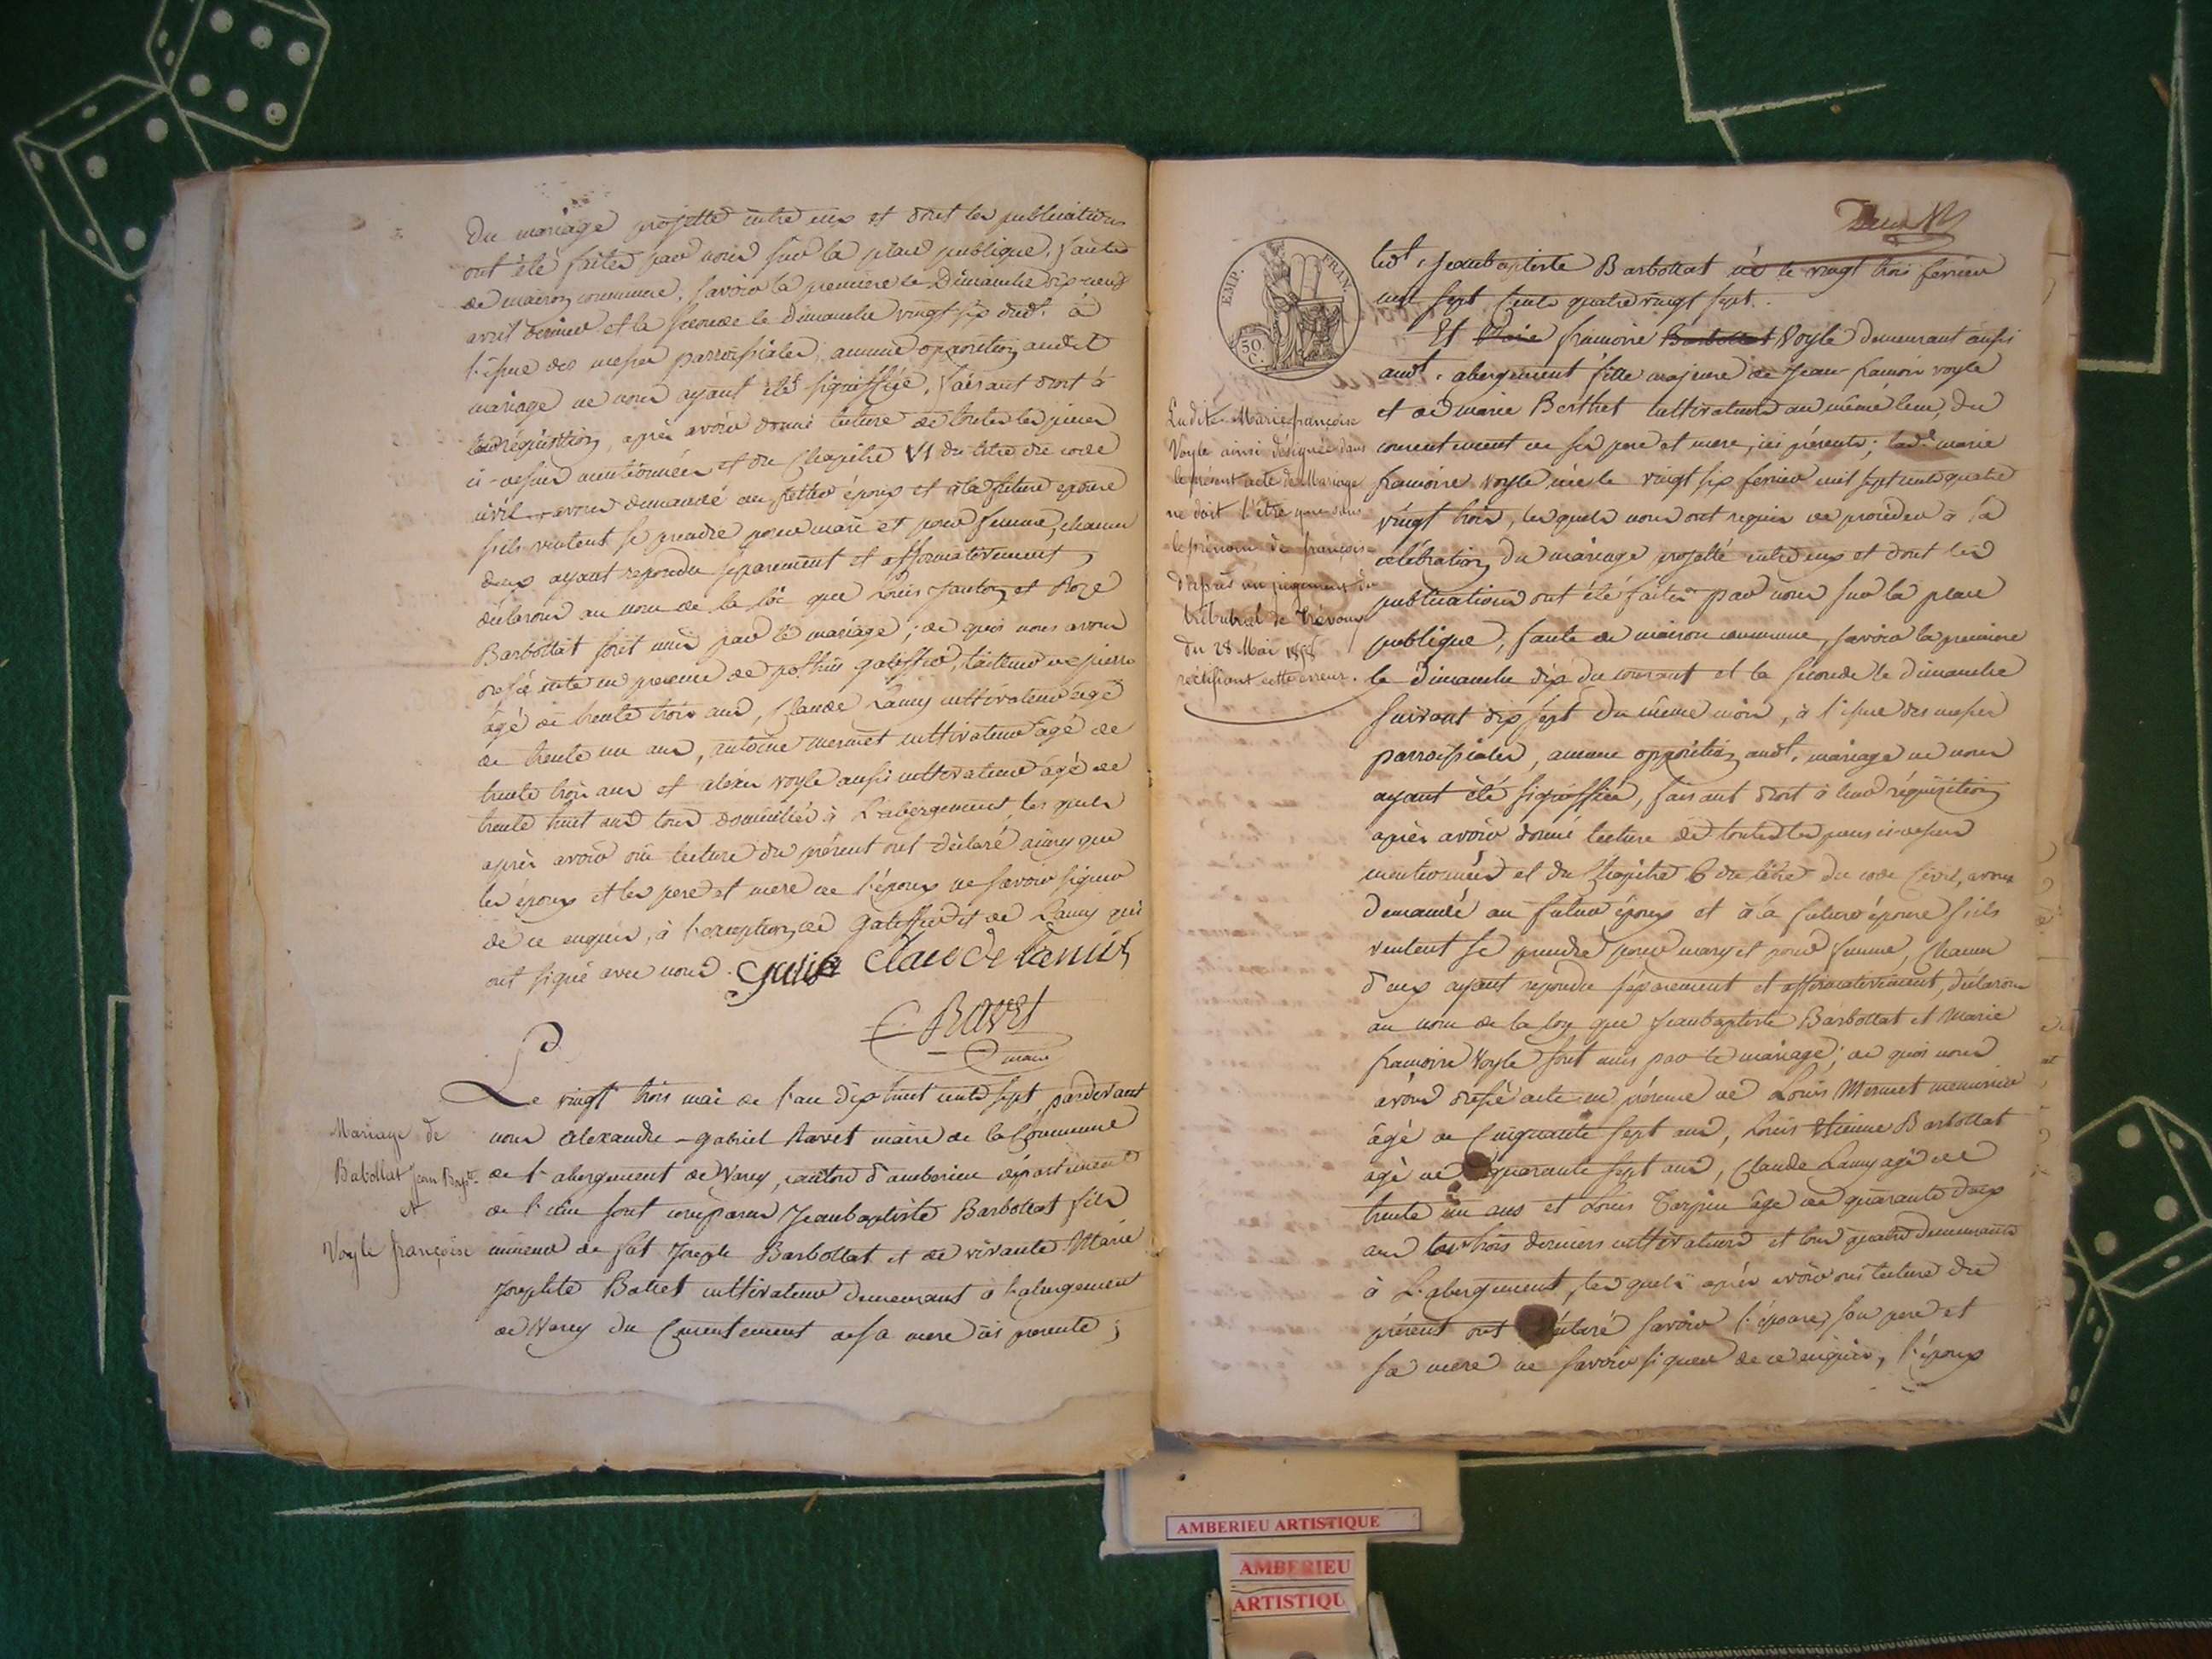 Du mariage projetté entre eux et dont les publications
ont été faites par nous sur la place publique, faute
de maison commune, savoir la premiere le Dimanche dix neuf
avril dernier et la seconde le dimanche vingt six dudt. à
l'issue des messes parroissiales, aucune opposition audit
mariage ne nous ayant été signiffiée, faisant droit à
réquisition, après avoir donné lecture de toutes les pieces
ci-dessus mentionnées et du Chapitre VI du titre du code
civil avons demandé au futur époux et à la future epouse
s'ils veulent se prendre pour mari et pour femme, chacun
deux ayant repondu séparement et affirmativement,
déclarons au nom de la loi que Louis Janton et Roze
Barbollat sont unis par le mariage; de quoi nous avons
dressé acte en presence de
agé de trente trois ans, Claude Lamy cultivateur agé
de trente un ans, antoine mermet cultivateur agé de
trente trois ans et alexis voyle aussi cultivateur agé de
trente huit ans tous domiciliés à L'abergement, les quels
après avoir oui lecture du présent ont déclaré ainsy que
les époux et les pere et mere de l'époux ne savoir signer
de ce enquis, à l'exception de et de Lamy qui
ont signé avec nous. Claude Lamis
Ravet
maire
Mariage de
Babollat Jean Bapte.
et
Voyle françoise
Le vingt trois mai de l'an dix huit cents sept, pardevant
nous alexandre-gabriel Ravet maire de la Commune
de l'abergement de Varey, canton d'amberieu département
de l'ain sont comparus Jeanbaptiste Barbollat fils
mineur de fut Joseph Barbollat et de vivante Marie
Josephte Bottet cultivateur demeurant à l'abergement
de Varey du Consentement de sa mere ici presente;
EMP. FRAN.
50 C.
ledt. Jeanbaptiste Barbollat né le vingt trois fevrier
mil sept Cents quatre vingt sept.
Et francoise Barbollat Voyle demeurant aussi
audt. abergement fille majeure de Jean-francois voyle
et de marie Berthet cultivateurs au même lieu, du
consentement de ses pere et mere, ici présents; lade. marie
francoise voyle née le vingt six fevrier mil sept cents quatre
vingt trois, lesquels nous ont requis de proceder à la
célébration du mariage projetté entre eux et dont les
publications ont été faites par nous sur la place
publique, faute de maison commune, savoir la premiere
le dimanche dix du courant et la seconde le dimanche
suivant dix sept du même mois, à l'issue des messes
parroissiales, aucune opposition audt. mariage ne nous
ayant été signiffiée, faisant droit à leur réquisition
après avoir donné lecture de toutes les pieces ci-dessus
mentionnées et du Chapitre 6 du titre du code Civil, avons
demandé au futur époux et à la future épouse s'ils
veulent se prendre pour mary et pour femme, chacun
d'eux ayant repondu séparement et affirmativement, déclarons
au nom de la loy que Jeanbaptiste Barbollat et Marie
francoise Voyle sont unis par le mariage; de quoi nous
avons dressé acte en présence de Louis Mermet menuisier
âgé de Cinquante sept ans, Louis Etienne Barbollat
agé de quarante sept ans, Claude Lamy agé de
trente un ans et Louis Tarpin âgé de quarante deux
ans les trois derniers cultivateurs et tous quatre demeurants
à L'abergement, les quels après avoir oui lecture du
présent ont déclaré savoir l'épouse, son pere et
sa mere ne savoir signer de ce enquis, l'époux
Ladite Marie françoise
Voyle ainsi désignée dans
le présent acte de Mariage
ne doit l'être que sous
le prénom de françoise
d'après un jugement du
tribunal de Trévoux
du 28 Mai
rectifiant cette erreur.
AMBERIEU ARTISTIQUE
AMBERIEU
ARTISTIQU